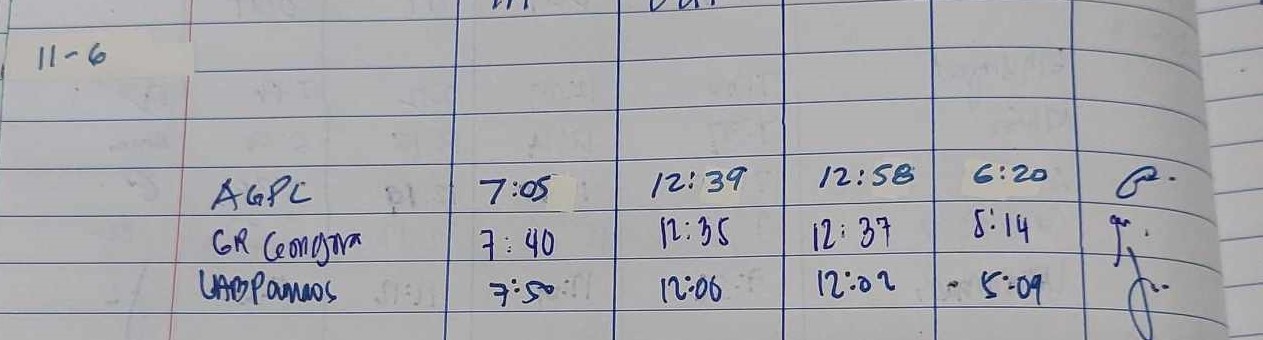 11-6
AGPC 7:05 12:39 12:58 6:20
GR 7:40 12:35 12:37 5:14
7:50 12:06 12:02 5:09